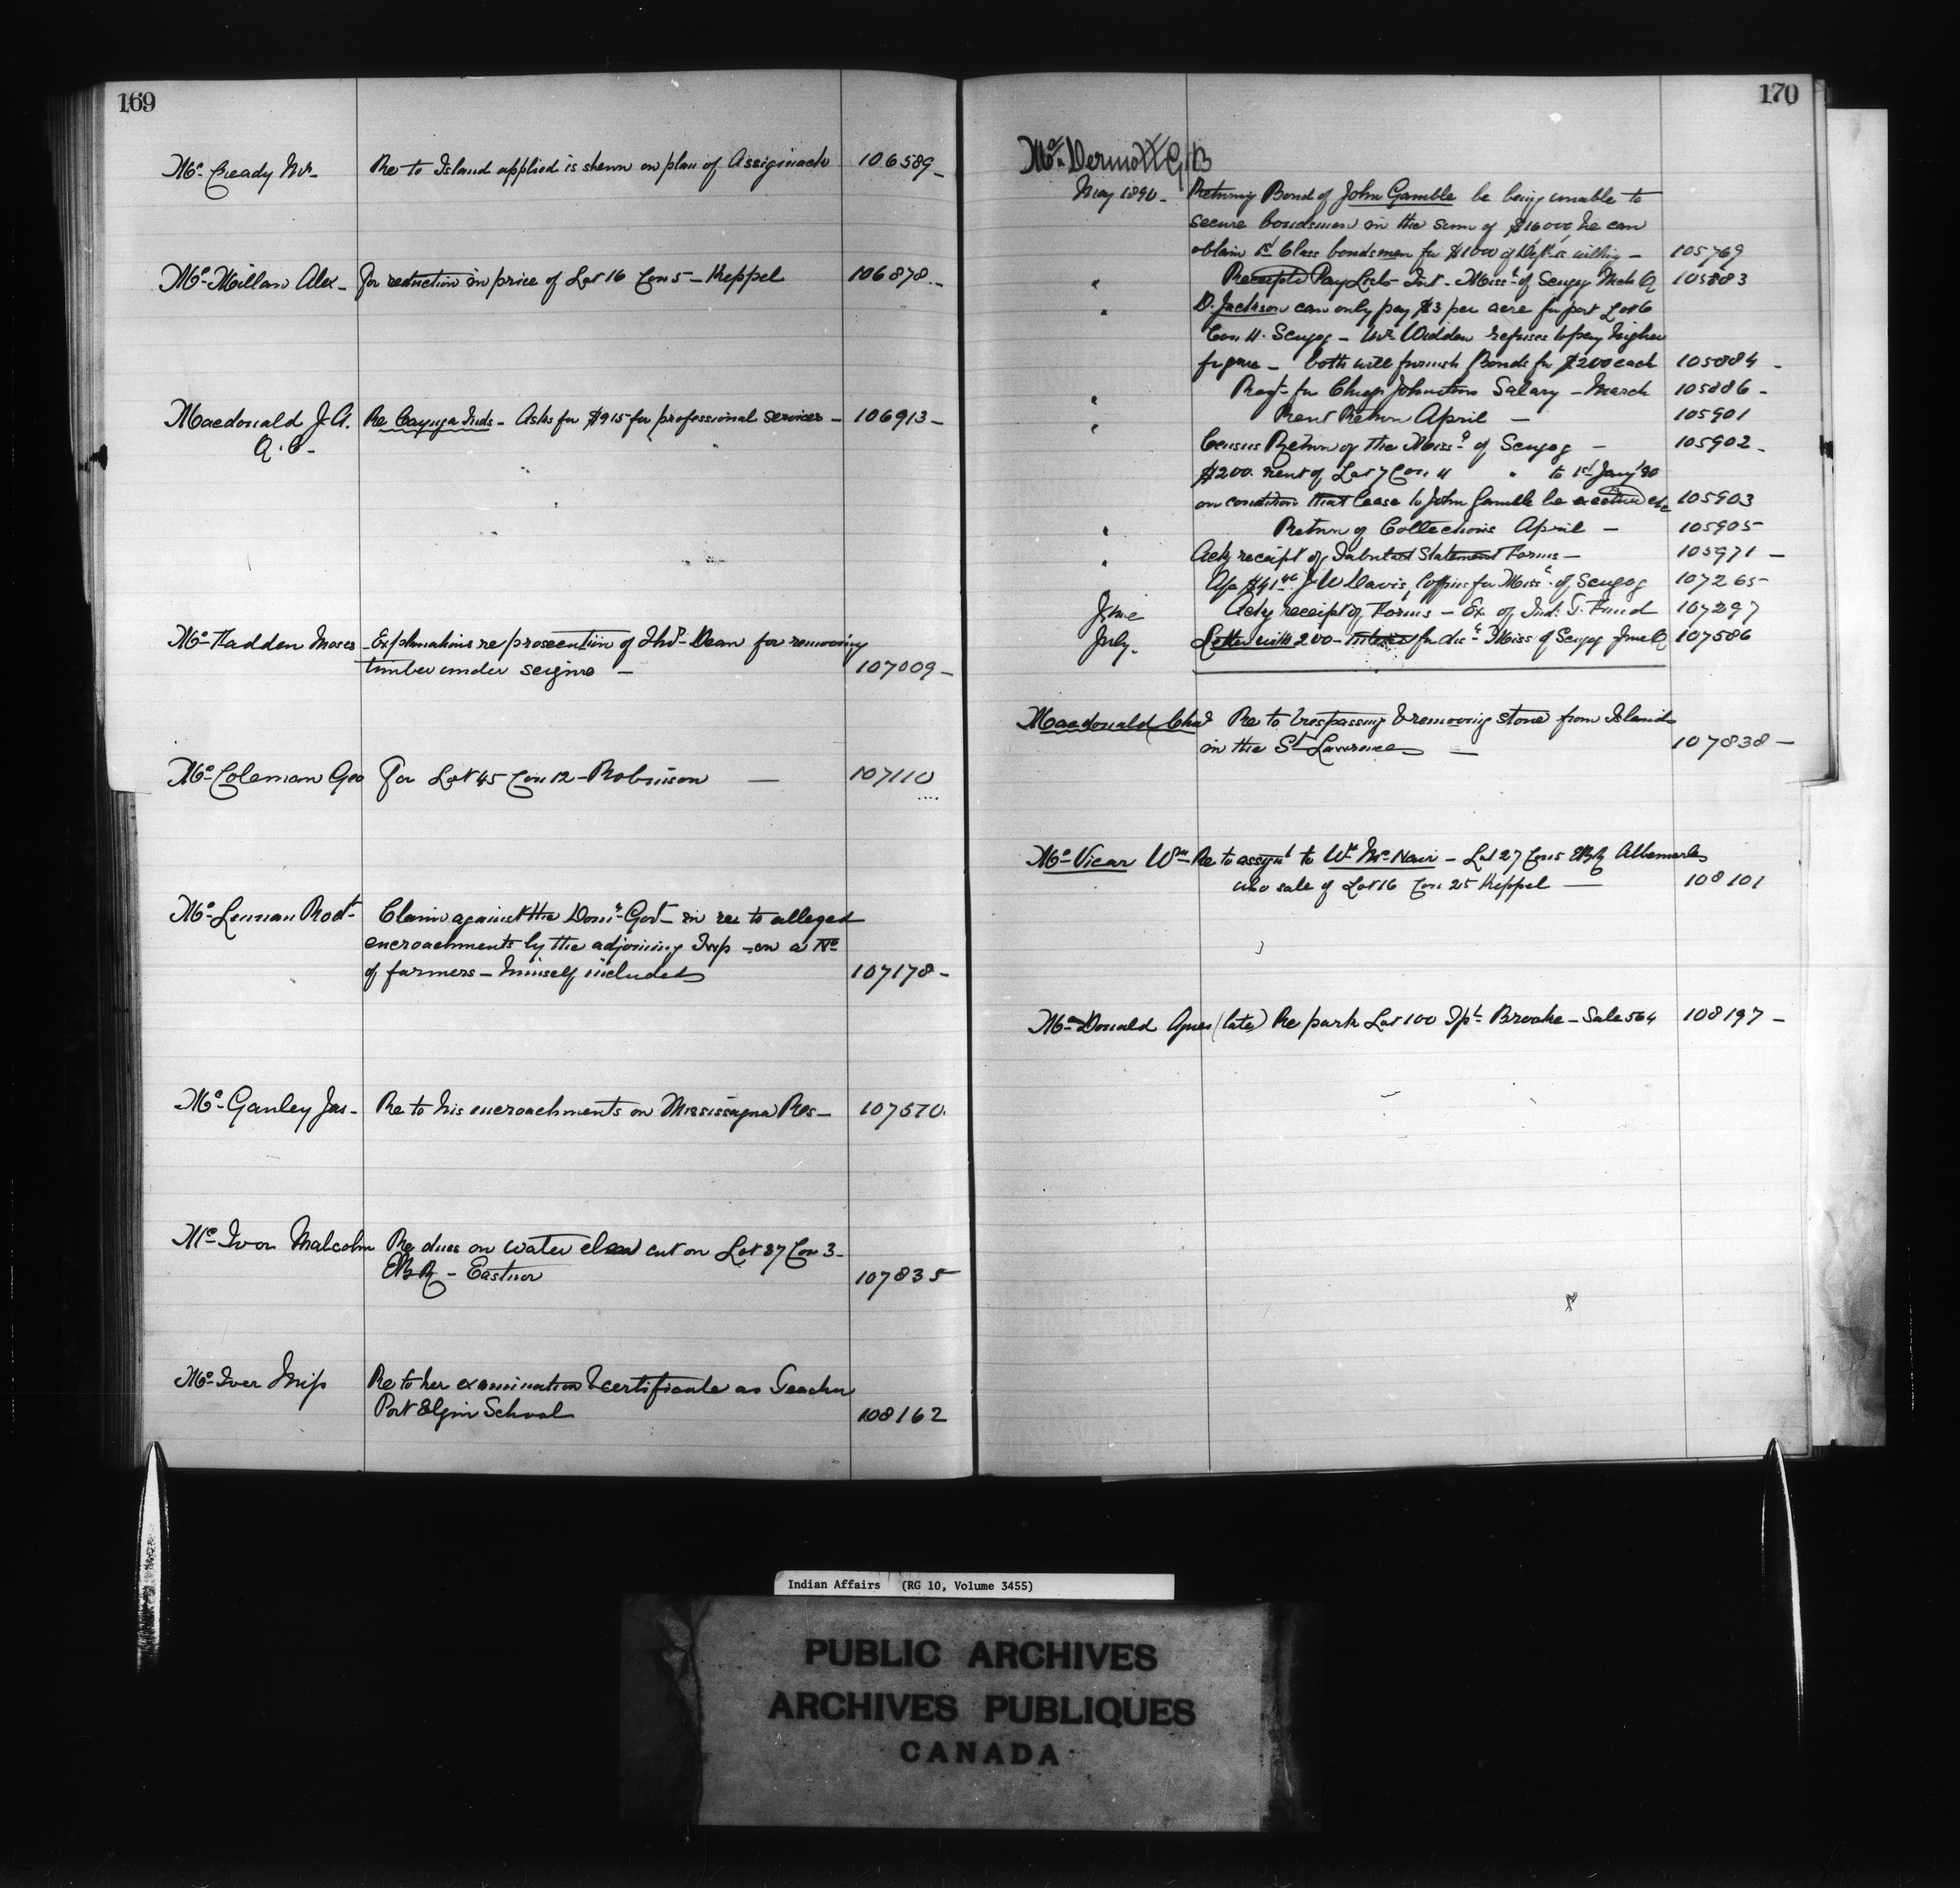 169
Mc Cready Mr. Re to Island applied is shewn on plan of Assiginack 106589
McMillan Alex. For reduction in price of Lot 16 Con 5 - Keppel 106878
Macdonald J. A. Re Cayuga Inds - Asks for $915 for professional services - 106913
Q. C.
McFadden Moses - Explanations re prosecution of Thos. Dean for removing
timber under seizure - 107009
McColeman Geo For Lot 45 Con 12 - Robinson - 107110
McLennan Rodt. Claim against the Domn. Govt. in re to alleged
encroachments by the adjoining Twp - on a No
of farmers - himself included 107178
McGanley Jas - Re to his encroachments on Mississagua Res - 107570
McIvor Malcolm Re dues on water elm cut on Lot 37 Con 3
EBR - Eastnor 107835
McIver Miss Re to her examination & certificate as Teacher
Port Elgin School 108162
170
McDermott G B
May 1890 - Returning Bond of John Gamble he being unable to
secure bondsmen in the sum of $16000, he can
obtain 1st Class bondsmen for $1000 if Dept. is willing - 105769
" Receipted Pay Lists Int - Missa. of Scugog Mch Q 105883
" D. Jackson can only pay $3 per acre for part Lot 6
Con 11 Scugog - Widden refuses to pay higher
figure - both will furnish Bonds for $200 each 105884
" Reqt. for Chief Johnstons Salary - March 105886
" Rent Return April - 105901
Census Return of the Missa. of Scugog - 105902
$200 rent of Lot 7 Con 11 " to 1st Jany '90
on condition that lease to John Gamble be executed etc 105903
" Return of Collections April - 105905
" Ackg receipt of Tabular Statement Forms - 105971
J W Davis, Coffins for Missa. of Scugog 107265
June Ackg receipt of Forms - Ex. of Ind. T. Fund 107297
July. Letter with 200 - for Missa of Scugog June Q 107586
Macdonald Chas Re to trespassing & removing stone from Islands
in the St. Lawrence - 107838
McVicar Wm - Re to assignt to Wm McNair - Lot 27 Con 5 EBR Albemarle
also sale of Lot 16 Con 25 Keppel - 108101
McDonald Agnes (late) Re park Lot 100 Tpt. Brooke - Sale 564 108197
Indian Affairs (RG 10, Volume 3455)
PUBLIC ARCHIVES
ARCHIVES PUBLIQUES
CANADA